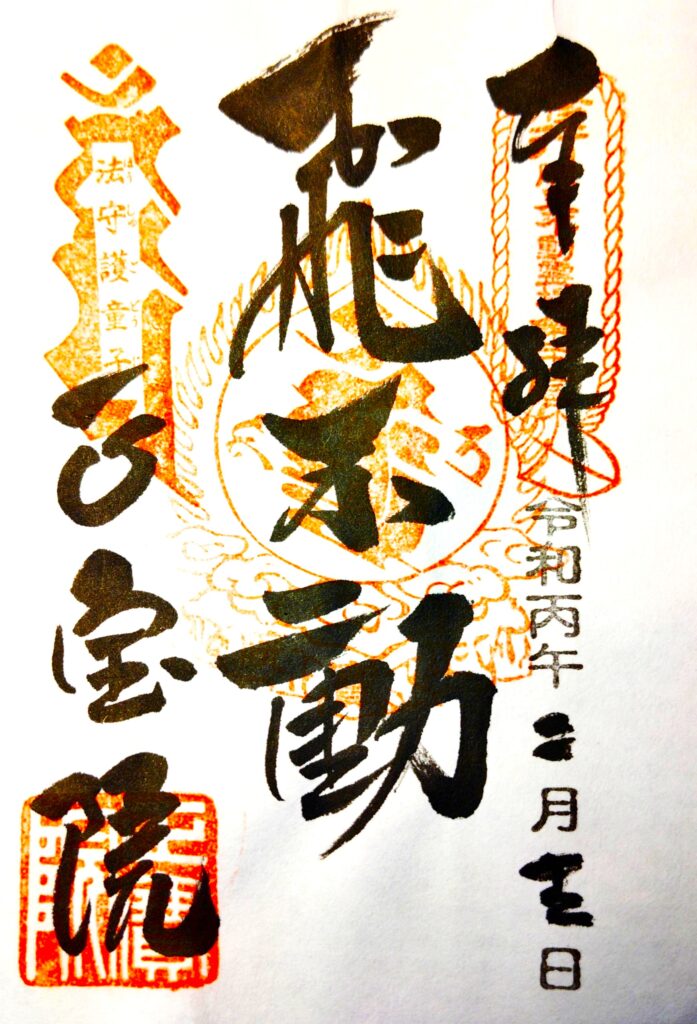 奉拝
令和丙午 月 日
飛不動
法守護童子
正宝院